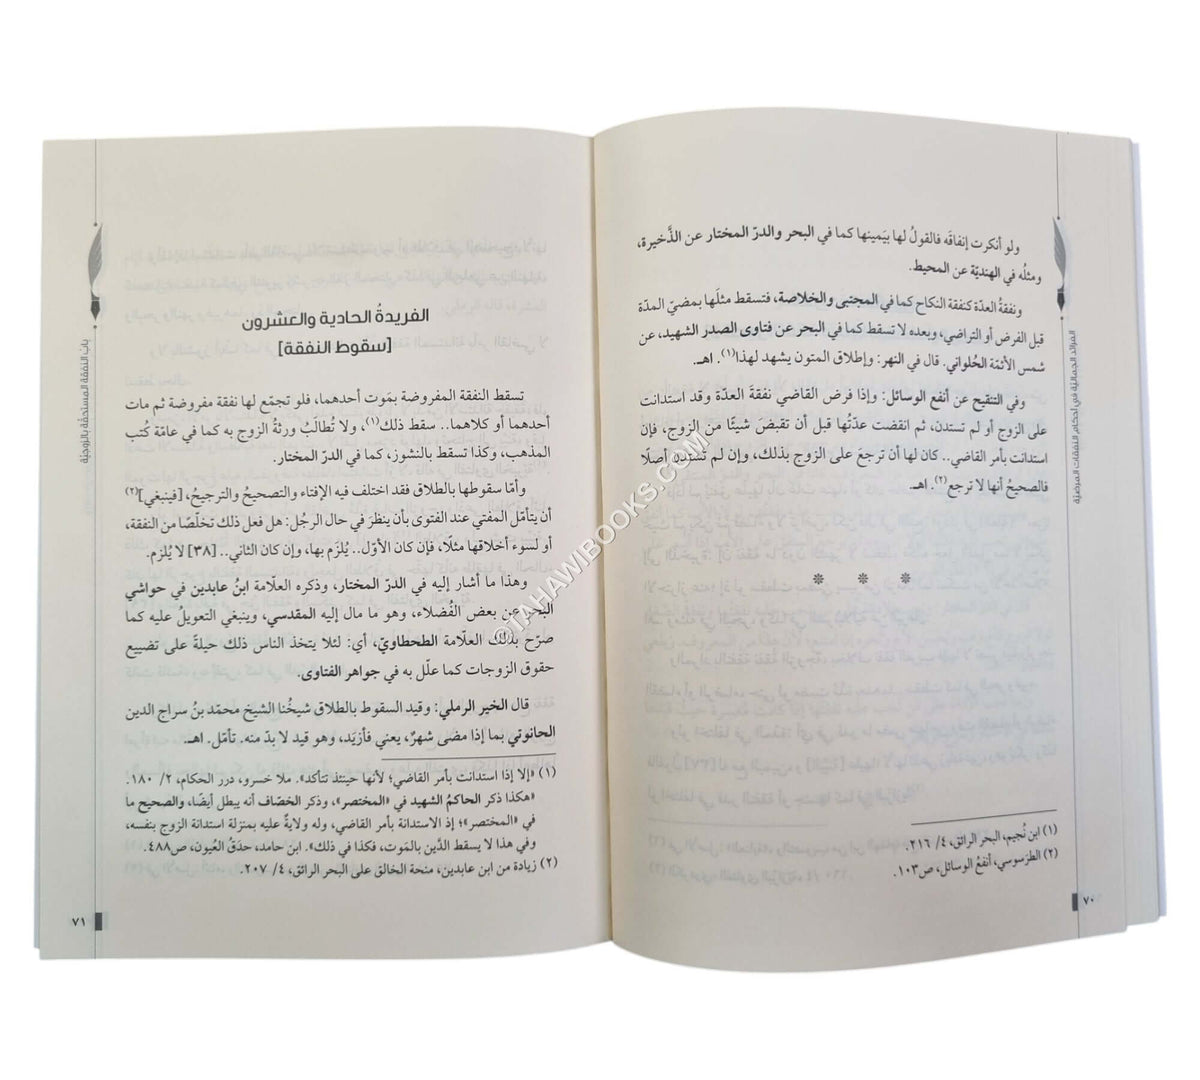 ولو أنكرت إنفاقَه فالقولُ لها بيَمينها كما في البحر والدرّ المختار عن الذَّخيرة،
ومثلُه في الهنديّة عن المحيط.
ونفقةُ العدّة كنفقة النكاح كما في المجتبى والخلاصة، فتسقط مثلَها بمضيّ المدّة
قبل الفرض أو التراضي، وبعده لا تسقط كما في البحر عن فتاوى الصدر الشهيد، عن
شمس الأئمّة الحُلواني. قال في النهر: وإطلاق المتون يشهد لهذا(١). اهـ.
وفي التنقيح عن أنفع الوسائل: وإذا فرض القاضي نفقةَ العدّة وقد استدانت
على الزوج أو لم تستدن، ثم انقضت عدّتُها قبل أن تقبضَ شيئًا من الزوج، فإن
استدانت بأمر القاضي.. كان لها أن ترجعَ على الزوج بذلك، وإن لم تستدن أصلًا
فالصحيحُ أنها لا ترجع(٢). اهـ.
(١) ابن نُجيم، البحر الرائق، ٤/ ٢١٦.
(٢) الطرَسوسي، أنفعُ الوسائل، ص١٠٣.
٧٠
الفرائد الجماليّة في أحكام النفقات المرضيّة
الفريدةُ الحادية والعشرون
[سقوط النفقة]
تسقط النفقة المفروضة بمَوت أحدهما، فلو تجمّع لها نفقة مفروضة ثم مات
أحدهما أو كلاهما.. سقط ذلك(١)، ولا تُطالَبُ ورثةُ الزوج به كما في عامّة كُتب
المذهب، وكذا تسقط بالنشوز، كما في الدرّ المختار.
وأمّا سقوطها بالطلاق فقد اختلف فيه الإفتاء والتصحيحُ والترجيحُ، [فينبغي](٢)
أن يتأمّل المفتي عند الفتوى بأن ينظرَ في حال الرجُل: هل فعل ذلك تخلّصًا من النفقة،
أو لسوء أخلاقها مثلًا، فإن كان الأوّل.. يُلزَم بها، وإن كان الثاني.. [٣٨] لا يُلزَم.
وهذا ما أشار إليه في الدرّ المختار، وذكره العلّامة ابنُ عابدين في حواشي
البحر عن بعض الفُضلاء، وهو ما مال إليه المقدسي، وينبغي التعويلُ عليه كما
صرّح بذلك العلّامة الطحطاويّ، أي: لئلا يتخذ الناس ذلك حيلةً على تضييع
حقوق الزوجات كما علّل به في جواهر الفتاوى.
قال الخير الرملي: وقيد السقوط بالطلاق شيخُنا الشيخ محمّد بنُ سراج الدين
الحانوتي بما إذا مضى شهرٌ، يعني فأزيَد، وهو قيد لا بدّ منه. تأمّل. اهـ.
(١) «إلا إذا استدانت بأمر القاضي؛ لأنها حينئذ تتأكد». ملا خسرو، درر الحكام، ٢/ ١٨٠.
«هكذا ذكر الحاكمُ الشهيد في «المختصر»، وذكر الخصّاف أنه يبطل أيضًا، والصحيح ما
في «المختصر»؛ إذ الاستدانة بأمر القاضي، وله ولايةٌ عليه بمنزلة استدانة الزوج بنفسه،
وفي هذا لا يسقط الدَّين بالمَوت، فكذا في ذلك». ابن حامد، حدَقُ العُيون، ص٤٨٨.
(٢) زيادة من ابن عابدين، منحة الخالق على البحر الرائق، ٤/ ٢٠٧.
٧١
باب النفقة المستحَقّة بالزوجيّة
©TAHAWIBOOKS.COM